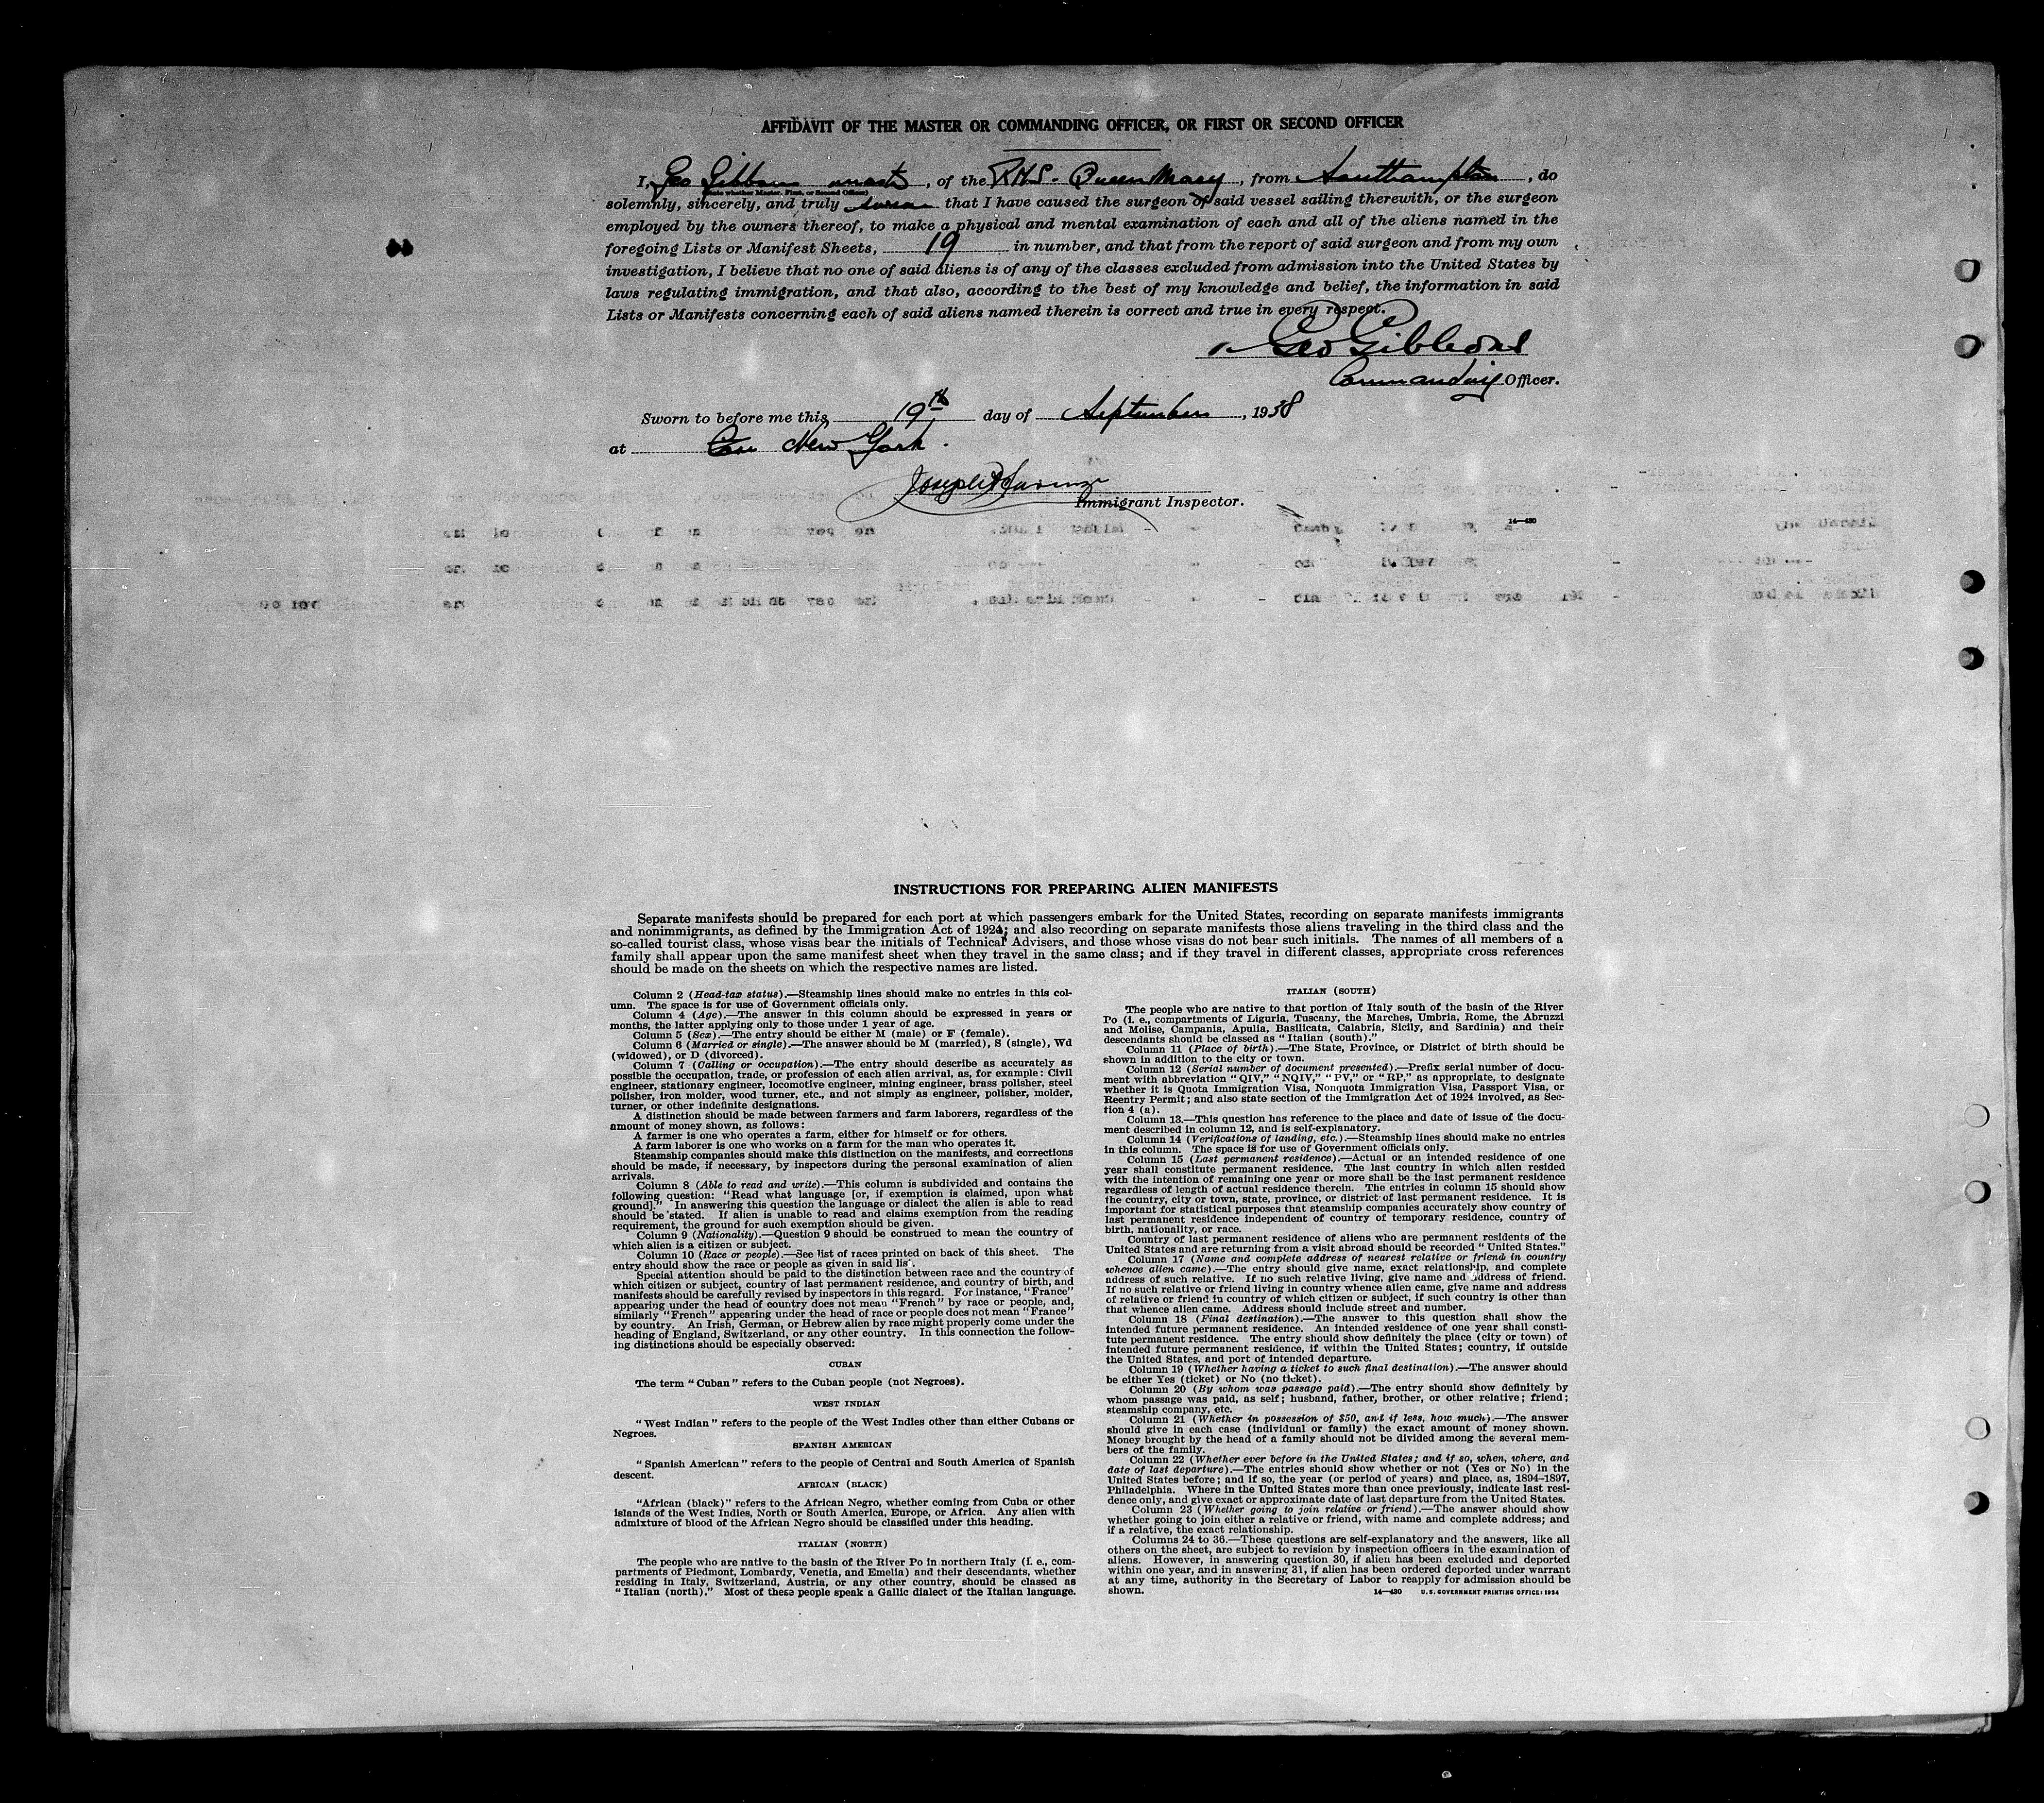 AFFIDAVIT OF THE MASTER OR COMMANDING OFFICER, OR FIRST OR SECOND OFFICER
I, Geo Gibbons master, of the R.M.S. Queen Mary, from Southampton, do
(State whether Master, First, or Second Officer)
solemnly, sincerely, and truly swear that I have caused the surgeon of said vessel sailing therewith, or the surgeon
employed by the owners thereof, to make a physical and mental examination of each and all of the aliens named in the
foregoing Lists or Manifest Sheets, 19 in number, and that from the report of said surgeon and from my own
investigation, I believe that no one of said aliens is of any of the classes excluded from admission into the United States by
laws regulating immigration, and that also, according to the best of my knowledge and belief, the information in said
Lists or Manifests concerning each of said aliens named therein is correct and true in every respect.
Geo Gibbons
Commanding Officer.
Sworn to before me this 19th day of September, 1938
at New York.
Joseph
Immigrant Inspector.
14—430
INSTRUCTIONS FOR PREPARING ALIEN MANIFESTS
Separate manifests should be prepared for each port at which passengers embark for the United States, recording on separate manifests immigrants
and nonimmigrants, as defined by the Immigration Act of 1924; and also recording on separate manifests those aliens traveling in the third class and the
so-called tourist class, whose visas bear the initials of Technical Advisers, and those whose visas do not bear such initials. The names of all members of a
family shall appear upon the same manifest sheet when they travel in the same class; and if they travel in different classes, appropriate cross references
should be made on the sheets on which the respective names are listed.
Column 2 (Head-tax status).—Steamship lines should make no entries in this col-
umn. The space is for use of Government officials only.
Column 4 (Age).—The answer in this column should be expressed in years or
months, the latter applying only to those under 1 year of age.
Column 5 (Sex).—The entry should be either M (male) or F (female).
Column 6 (Married or single).—The answer should be M (married), S (single), Wd
(widowed), or D (divorced).
Column 7 (Calling or occupation).—The entry should describe as accurately as
possible the occupation, trade, or profession of each alien arrival, as, for example: Civil
engineer, stationary engineer, locomotive engineer, mining engineer, brass polisher, steel
polisher, iron molder, wood turner, etc., and not simply as engineer, polisher, molder,
turner, or other indefinite designations.
A distinction should be made between farmers and farm laborers, regardless of the
amount of money shown, as follows:
A farmer is one who operates a farm, either for himself or for others.
A farm laborer is one who works on a farm for the man who operates it.
Steamship companies should make this distinction on the manifests, and corrections
should be made, if necessary, by inspectors during the personal examination of alien
arrivals.
Column 8 (Able to read and write).—This column is subdivided and contains the
following question: "Read what language [or, if exemption is claimed, upon what
ground]." In answering this question the language or dialect the alien is able to read
should be stated. If alien is unable to read and claims exemption from the reading
requirement, the ground for such exemption should be given.
Column 9 (Nationality).—Question 9 should be construed to mean the country of
which alien is a citizen or subject.
Column 10 (Race or people).—See list of races printed on back of this sheet. The
entry should show the race or people as given in said lis.
Special attention should be paid to the distinction between race and the country of
which citizen or subject, country of last permanent residence, and country of birth, and
manifests should be carefully revised by inspectors in this regard. For instance, "France"
appearing under the head of country does not mean "French" by race or people, and,
similarly "French" appearing under the head of race or people does not mean "France"
by country. An Irish, German, or Hebrew alien by race might properly come under the
heading of England, Switzerland, or any other country. In this connection the follow-
ing distinctions should be especially observed:
CUBAN
The term "Cuban" refers to the Cuban people (not Negroes).
WEST INDIAN
"West Indian" refers to the people of the West Indies other than either Cubans or
Negroes.
SPANISH AMERICAN
"Spanish American" refers to the people of Central and South America of Spanish
descent.
AFRICAN (BLACK)
"African (black)" refers to the African Negro, whether coming from Cuba or other
islands of the West Indies, North or South America, Europe, or Africa. Any alien with
admixture of blood of the African Negro should be classified under this heading.
ITALIAN (NORTH)
The people who are native to the basin of the River Po in northern Italy (i. e., com-
partments of Piedmont, Lombardy, Venetia, and Emelia) and their descendants, whether
residing in Italy, Switzerland, Austria, or any other country, should be classed as
"Italian (north)." Most of these people speak a Gallic dialect of the Italian language.
ITALIAN (SOUTH)
The people who are native to that portion of Italy south of the basin of the River
Po (i. e., compartments of Liguria, Tuscany, the Marches, Umbria, Rome, the Abruzzi
and Molise, Campania, Apulia, Basilicata, Calabria, Sicily, and Sardinia) and their
descendants should be classed as "Italian (south)."
Column 11 (Place of birth).—The State, Province, or District of birth should be
shown in addition to the city or town.
Column 12 (Serial number of document presented).—Prefix serial number of docu-
ment with abbreviation "QIV," "NQIV," "PV," or "RP," as appropriate, to designate
whether it is Quota Immigration Visa, Nonquota Immigration Visa, Passport Visa, or
Reentry Permit; and also state section of the Immigration Act of 1924 involved, as Sec-
tion 4 (a).
Column 13.—This question has reference to the place and date of issue of the docu-
ment described in column 12, and is self-explanatory.
Column 14 (Verifications of landing, etc.).—Steamship lines should make no entries
in this column. The space is for use of Government officials only.
Column 15 (Last permanent residence).—Actual or an intended residence of one
year shall constitute permanent residence. The last country in which alien resided
with the intention of remaining one year or more shall be the last permanent residence
regardless of length of actual residence therein. The entries in column 15 should show
the country, city or town, state, province, or district of last permanent residence. It is
important for statistical purposes that steamship companies accurately show country of
last permanent residence independent of country of temporary residence, country of
birth, nationality, or race.
Country of last permanent residence of aliens who are permanent residents of the
United States and are returning from a visit abroad should be recorded "United States."
Column 17 (Name and complete address of nearest relative or friend in country
whence alien came).—The entry should give name, exact relationship, and complete
address of such relative. If no such relative living, give name and address of friend.
If no such relative or friend living in country whence alien came, give name and address
of relative or friend in country of which citizen or subject, if such country is other than
that whence alien came. Address should include street and number.
Column 18 (Final destination).—The answer to this question shall show the
intended future permanent residence. An intended residence of one year shall consti-
tute permanent residence. The entry should show definitely the place (city or town) of
intended future permanent residence, if within the United States; country, if outside
the United States, and port of intended departure.
Column 19 (Whether having a ticket to such final destination).—The answer should
be either Yes (ticket) or No (no ticket).
Column 20 (By whom was passage paid).—The entry should show definitely by
whom passage was paid, as self; husband, father, brother, or other relative; friend;
steamship company, etc.
Column 21 (Whether in possession of $50, and if less, how much).—The answer
should give in each case (individual or family) the exact amount of money shown.
Money brought by the head of a family should not be divided among the several mem-
bers of the family.
Column 22 (Whether ever before in the United States; and if so, when, where, and
date of last departure).—The entries should show whether or not (Yes or No) in the
United States before; and if so, the year (or period of years) and place, as, 1894–1897,
Philadelphia. Where in the United States more than once previously, indicate last resi-
dence only, and give exact or approximate date of last departure from the United States.
Column 23 (Whether going to join relative or friend).—The answer should show
whether going to join either a relative or friend, with name and complete address; and
if a relative, the exact relationship.
Columns 24 to 36.—These questions are self-explanatory and the answers, like all
others on the sheet, are subject to revision by inspection officers in the examination of
aliens. However, in answering question 30, if alien has been excluded and deported
within one year, and in answering 31, if alien has been ordered deported under warrant
at any time, authority in the Secretary of Labor to reapply for admission should be
shown.
14—430 U. S. GOVERNMENT PRINTING OFFICE: 1934